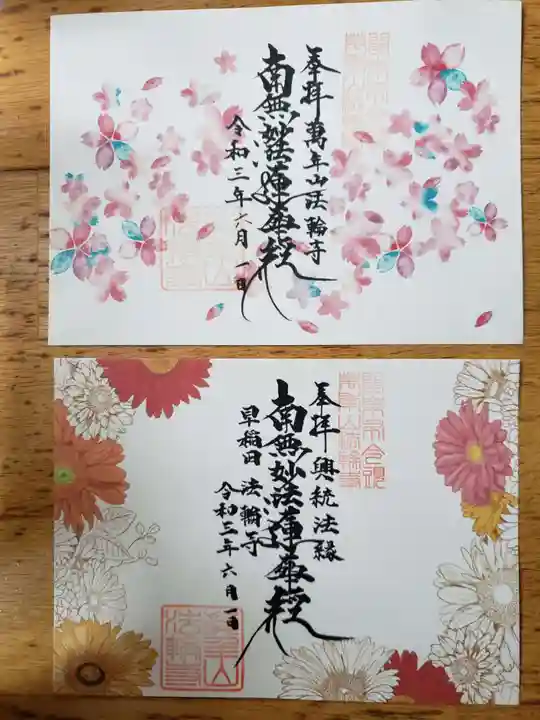 奉拝 萬年山法輪寺
南無妙法蓮華経
令和三年六月一日
奉拝 興統法縁
南無妙法蓮華経
早稲田 法輪寺
令和三年六月一日